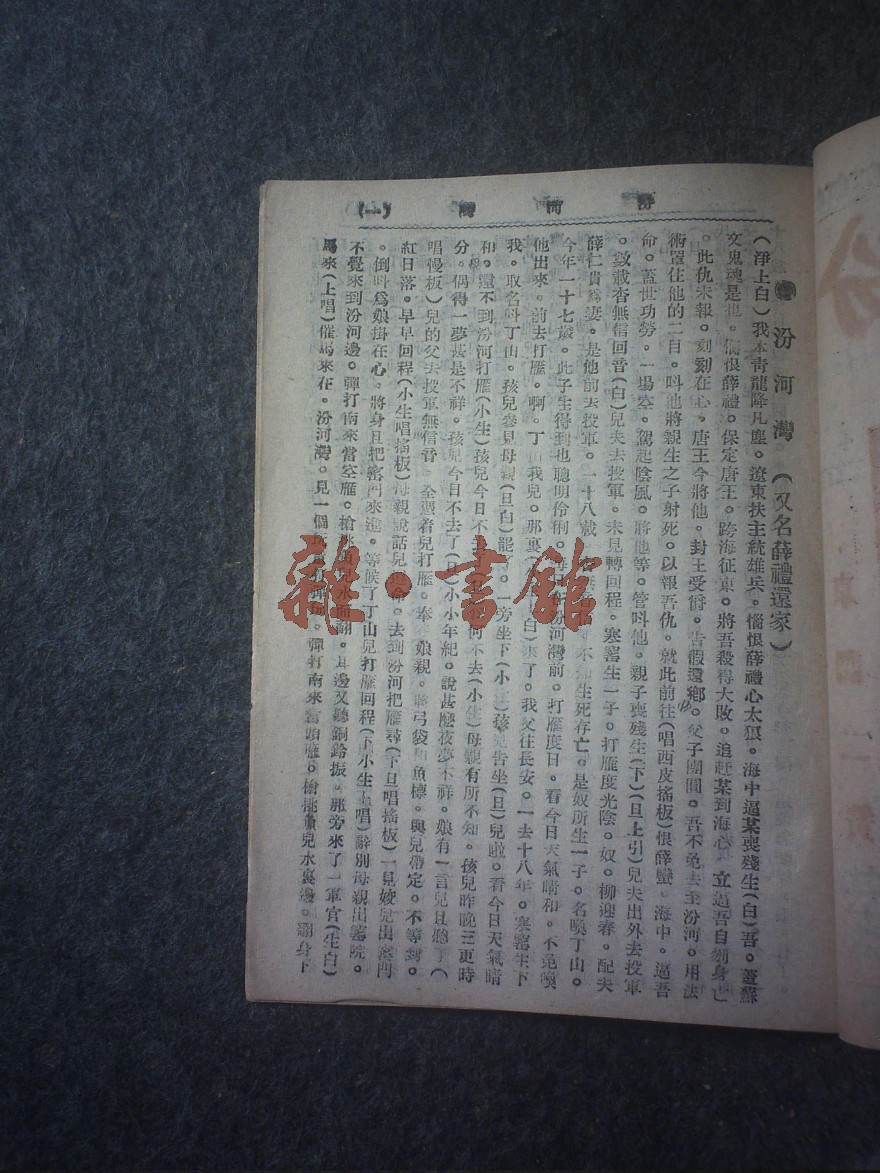 汾河灣 (一)
汾河灣 (又名薛禮還家)
(淨上白)我本青龍降凡塵。遼東扶主統雄兵。惱恨薛禮心太狠。海中逼某喪殘生(白)吾。蓋蘇
文鬼魂是也。惱恨薛禮。保定唐王。跨海征東。將吾殺得大敗。追赶某到海心。立逼吾自刎身亡
。此仇未報。刻刻在心。唐王今將他。封王受爵。告假還鄉。父子團圓。吾不免去至汾河。用法
術置住他的二目。呌他將親生之子射死。以報吾仇。就此前往(唱西皮搖板)恨薛蠻。海中。逼吾
命。蓋世功勞。一場空。駕起陰風。將他等。管呌他。親子喪殘生(下)(旦上引)兒夫出外去投軍
。數載杳無信回音(白)兒夫去投軍。未見轉回程。寒窰生一子。打雁度光陰。奴。柳迎春。配夫
薛仁貴爲妻。是他前去投軍。一十八載。不知生死存亡。是奴所生一子。名喚丁山。
今年一十七歲。此子生得到也聰明伶俐。每日在汾河灣前。打雁度日。看今日天氣晴和。不免喚
他出來。前去打雁。啊。丁山我兒。那裏(上白)來了。我父往長安。一去十八年。寒窰生下
我。取名呌丁山。孩兒參見母親(旦白)罷了。一旁坐下(小生)孩兒告坐(旦)兒啦。看今日天氣晴
和。還不到汾河打雁(小生)孩兒今日不去了(旦)爲何不去(小生)母親有所不知。孩兒昨晚三更時
分。偶得一夢甚是不祥。孩兒今日不去了(旦)小小年紀。說甚麽夜夢不祥。娘有一言兒且聽了(
唱慢板)兒的父去投軍無信音。全憑着兒打雁。奉養娘親。將弓袋和魚標。與兒帶定。不等到。
紅日落。早早回程(小生唱搖板)母親說話兒遵命。去到汾河把雁尋(下旦唱搖板)一見姣兒出窰門
。倒呌爲娘掛在心。將身且把窰門來進。等候了丁山兒打雁回程(下小生上唱)辭別母親出窰院。
不覺來到汾河邊。彈打南來當空雁。槍挑魚兒水面翻。耳邊又聽銅鈴振。那旁來了一軍官(生白)
馬來(上唱)催馬來在。汾河灣。見一個頑童打彈玩。彈打南來當頭雁。槍挑魚兒水裏邊。翻身下
雜·書館